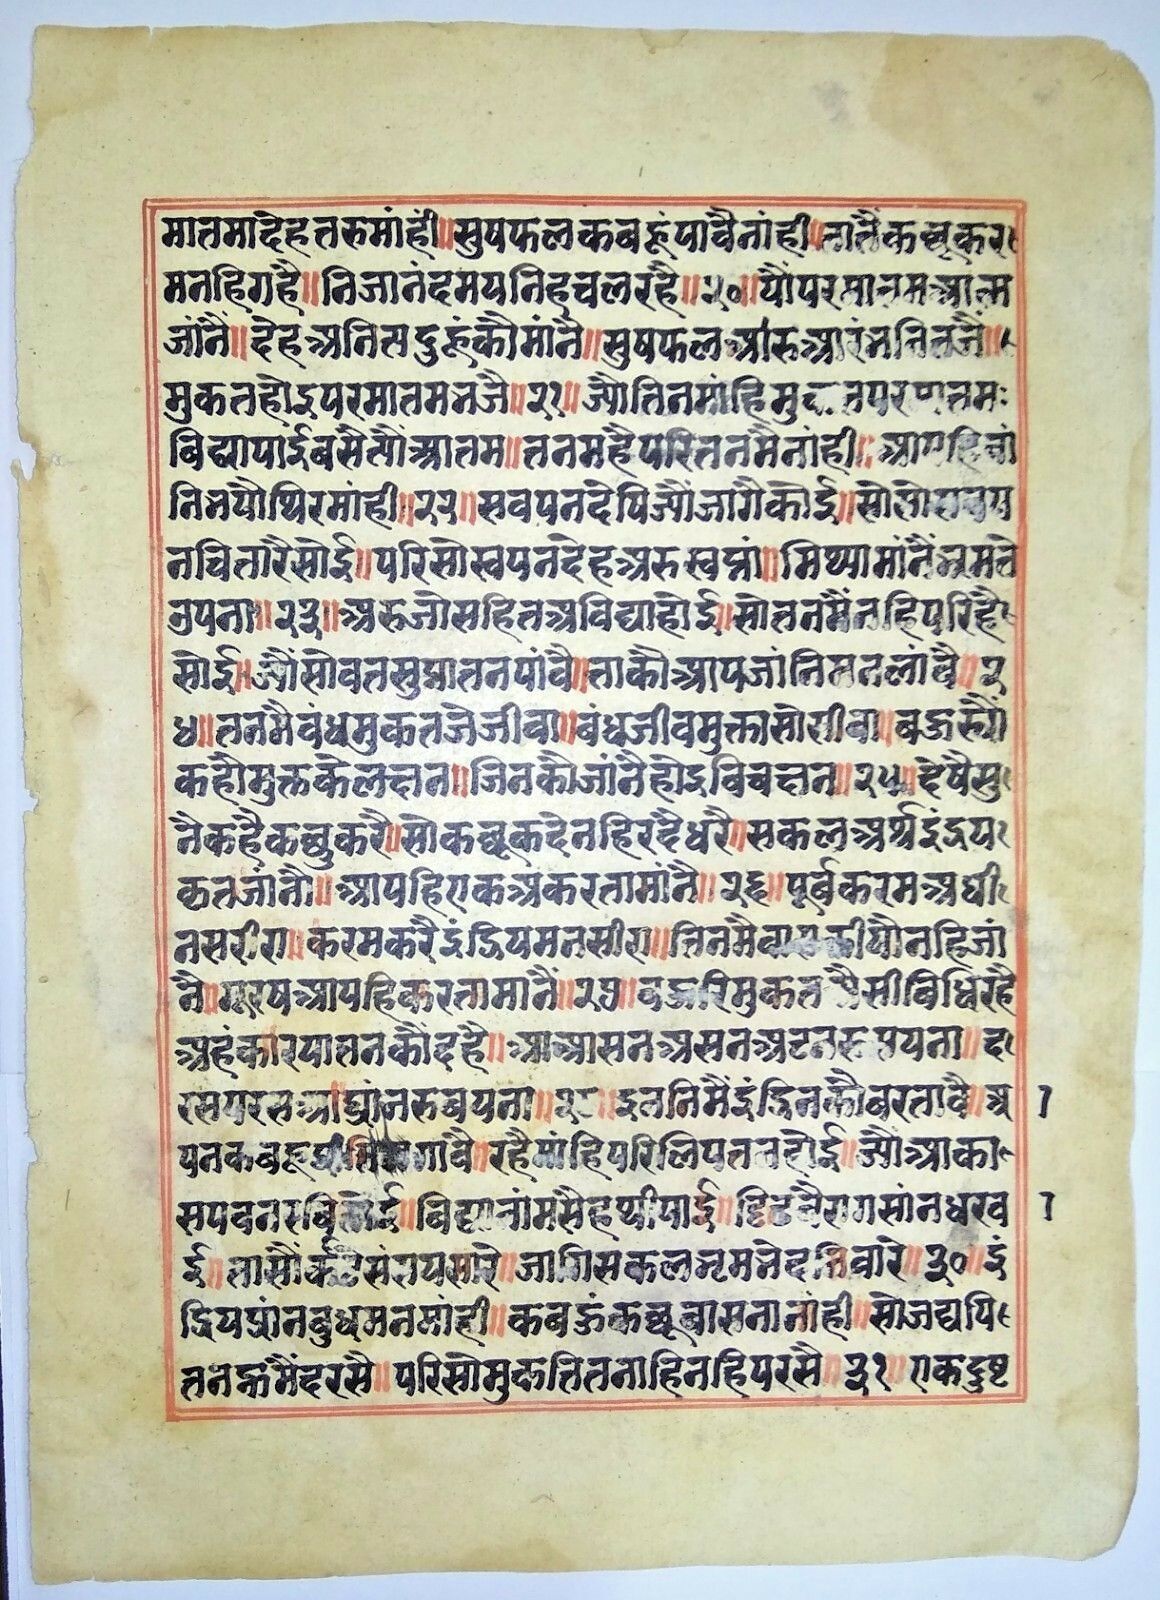 मातमादेहतरुमांहीं॥सुषफलकबहूंपावैनांही॥तातैंकछूकर
मनहिगहै॥निजानंदमयनिहचलरहै॥२०॥यौंपरमातमआत्म
जांनैं॥देहअनितसदुहूंकौमांनै॥सुषफलअरुआरंभनितजैं॥
मुकतहोइपरमातमभजै॥२१॥ज्यौतिनमांहिमुकतपरमातम
विद्यापाईबसैत्यौंआतम॥तनमहैपरितनमैनांही॥आपहिजां
निभयौथिरमांही॥२२॥सवपनदेषिज्यौंजागैकोई॥सोसोसवप
नचितारैसोई॥परिसोस्वपनदेहअरुस्वप्नां॥मिथ्यामांनैंभ्रमते
उपना॥२३॥अरुजोसहितअविद्याहोई॥सोतनमैंनहिपरिहै
सोई॥ज्यौंसोवतसुप्नातनपांवै॥ताकौआपजांनिमनलांवै॥२
४॥तनमैबंधमुकतजेजीवा॥बंधजीवमुक्तासोसीवा॥बद्धरुयौं
कहौमुक्तकेलछन॥जिनकौजांनैहोइविचछन॥२५॥देषैसु
नैकहैकछुकरै॥सोकछूकदेनहिरदैधरै॥सकलअर्थइंद्रिय
कृतजांनौ॥आपहिएकअकरतामांनै॥२६॥पूर्वकरमअधी
नसरीरा॥करमकरैइंद्रियमनसीरा॥तिनमैवासकीयौनहिजां
नै॥मूरषआपहिकरतामानैं॥२७॥बद्धरिमुकतऔसीविधिरहै
अहंकारपातनकौंदहै॥आआसनअसनअटनरुसयना॥द
रसपरसआघ्रांनरुबयना॥२८॥इननिमैंइंद्रिनकौबरतावै॥अ
पनकबहूप्रीतिलगावै॥रहैमांहिपरिलिपतनहोई॥ज्यौंआका
सपवनरविकोई॥विद्यानांमसैहथीपाई॥द्रिढबैरागसांनधरव
ई॥तासौंकाटैसंसयसारे॥जागिसकलभ्रमभेदनिवारे॥३०॥इं
द्रियप्रांनबुधमनमांही॥कबहूंकछूबासनानांही॥सोजद्यपि
तनह्नमैंदरसै॥परिसोमुकतितनाहिनहिपरसै॥३१॥एकदुष्ट